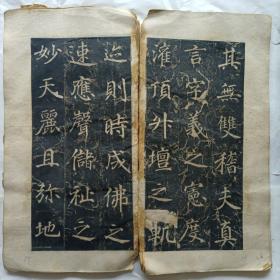 其無雙稽夫真
言宗義之憲度
灌頂升壇之軌
迹則時成佛之
速應聲儲祉之
妙天麗且弥地